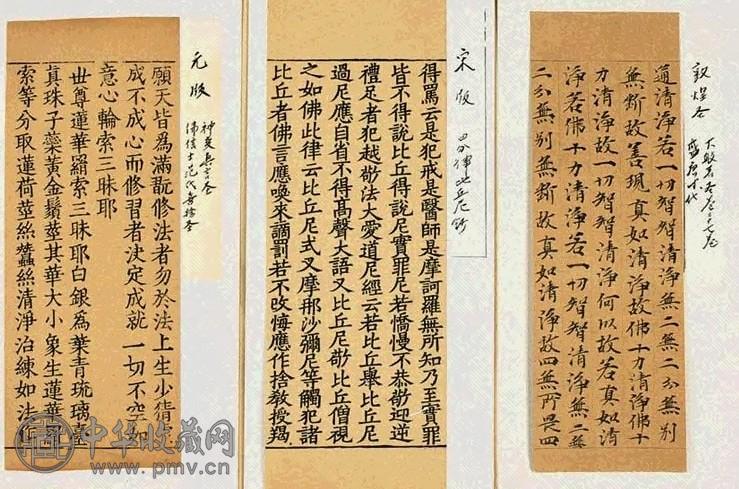 敦煌本
道清淨若一切智智清淨無二無二分無別
無斷故善現真如清淨故佛十力清淨佛十
力清淨故一切智智清淨何以故若真如清
淨若佛十力清淨若一切智智清淨無二無
二分無別無斷故真如清淨故四無所畏四
宋版
四分律比丘尼鈔
得罵云是犯戒是醫師是摩訶羅無所知乃至實罪
皆不得說比丘得說尼實罪尼若憍慢不恭敬迎逆
禮足者犯越敬法大愛道尼經云若比丘舉比丘尼
過尼應自省不得高聲大語又比丘尼敬比丘僧視
之如佛此律云比丘尼式叉摩那沙彌尼等觸犯諸
比丘者佛言應喚來謫罰若不改悔應作捨教授羯
元版
願天皆為滿翫修法者勿於法上生少猜
成不成心而修習者決定成就一切不空
意心輪索三昧耶
世尊蓮華羂索三昧耶白銀為葉青琉璃臺
真珠子蘂黃金鬚莖其華大小象生蓮華
索等分取蓮荷莖絲蠶絲清淨治練如法
中华收藏网
www.pmv.cn